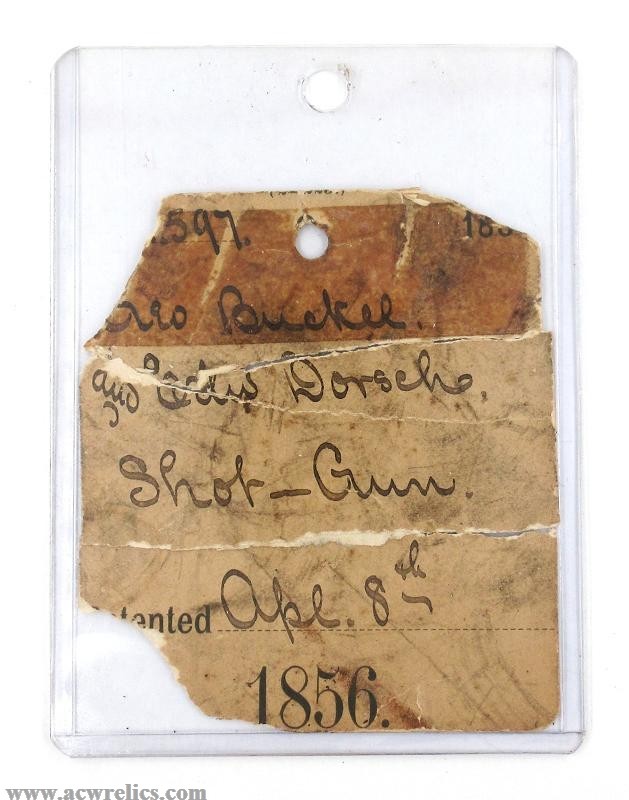 .597. 185
Geo Buckel.
and Edw Dorsch.
Shot-Gun.
Patented Apl. 8th
1856.
www.acwrelics.com